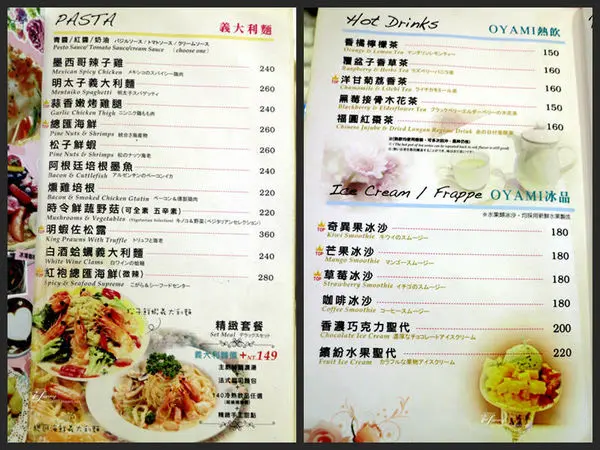 PASTA 義大利麵
青醬/紅醬/奶油 バジルソース・トマトソース・クリームソース
Pesto Sauce/ Tomato Sauce/cream Sauce (choose one)
墨西哥辣子雞 240
Mexican Spicy Chicken メキシコのスパイシー鶏肉
明太子義大利麵 260
Mentaiko Spaghetti 明太子スパゲッティ
蒜香嫩烤雞腿 240
Garlic Chicken Thigh ニンニク鶏もも肉
總匯海鮮 260
Pine Nuts & Shrimps
松子鮮蝦 260
Pine Nuts & Shrimps 松のナッツ海老
阿根廷培根墨魚 240
Bacon & Cuttlefish アルゼンチンのベーコンイカ
燻雞培根 220
Bacon & Smoked Chicken Gtatin ベーコン&燻製鶏肉
時令鮮蔬野菇(可全素 五辛素) 220
Mushrooms & Vegetables (Vegetarian Selection) キノコ&野菜(ベジタリアンセレクション)
明蝦佐松露 360
King Prawns With Truffle トリュフと海老
白酒蛤蠣義大利麵 220
White Wine Clams 白ワインの蛤蜊
紅袍總匯海鮮(微辣) 280
Spicy & Seafood Supreme こがらし&シーフードセンター
松子鮮蝦義大利麵
精緻套餐
Set Meal デラックスセット
義大利麵價+NT.149
法式 麵包
140冷熱飲品任選
精緻手工甜點
總匯海鮮義大利麵
Hot Drinks OYAMI熱飲
香橘檸檬茶 150
Orange & Lemon Tea マンダリンレモンティー
覆盆子香草茶 160
Raspberry & Herbo Tea ラズベリーバニラ茶
洋甘菊荔香茶 160
Chamomile & Litchi Tea ライチカモミール茶
黑莓接骨木花茶 150
Blackberry & Elderflower Tea ブラックベリーエルダーベリーの木花茶
福圓紅棗茶 160
Chinese Jujube & Dried Longan Regime Drink
Ice Cream / Frappe OYAMI冰品
※水果類冰沙，均採用新鮮水果製成
TOP 奇異果冰沙 180
Kiwi Smoothie キウイのスムージー
TOP 芒果冰沙 180
Mango Smoothie マンゴースムージー
TOP 草莓冰沙 180
Strawberry Smoothie イチゴのスムージー
咖啡冰沙 180
Coffee Smoothie コーヒースムージー
香濃巧克力聖代 200
Chocolate Ice Cream 濃厚なチョコレートアイスクリーム
繽紛水果聖代 220
Fruit Ice Cream カラフルな果物アイスクリーム